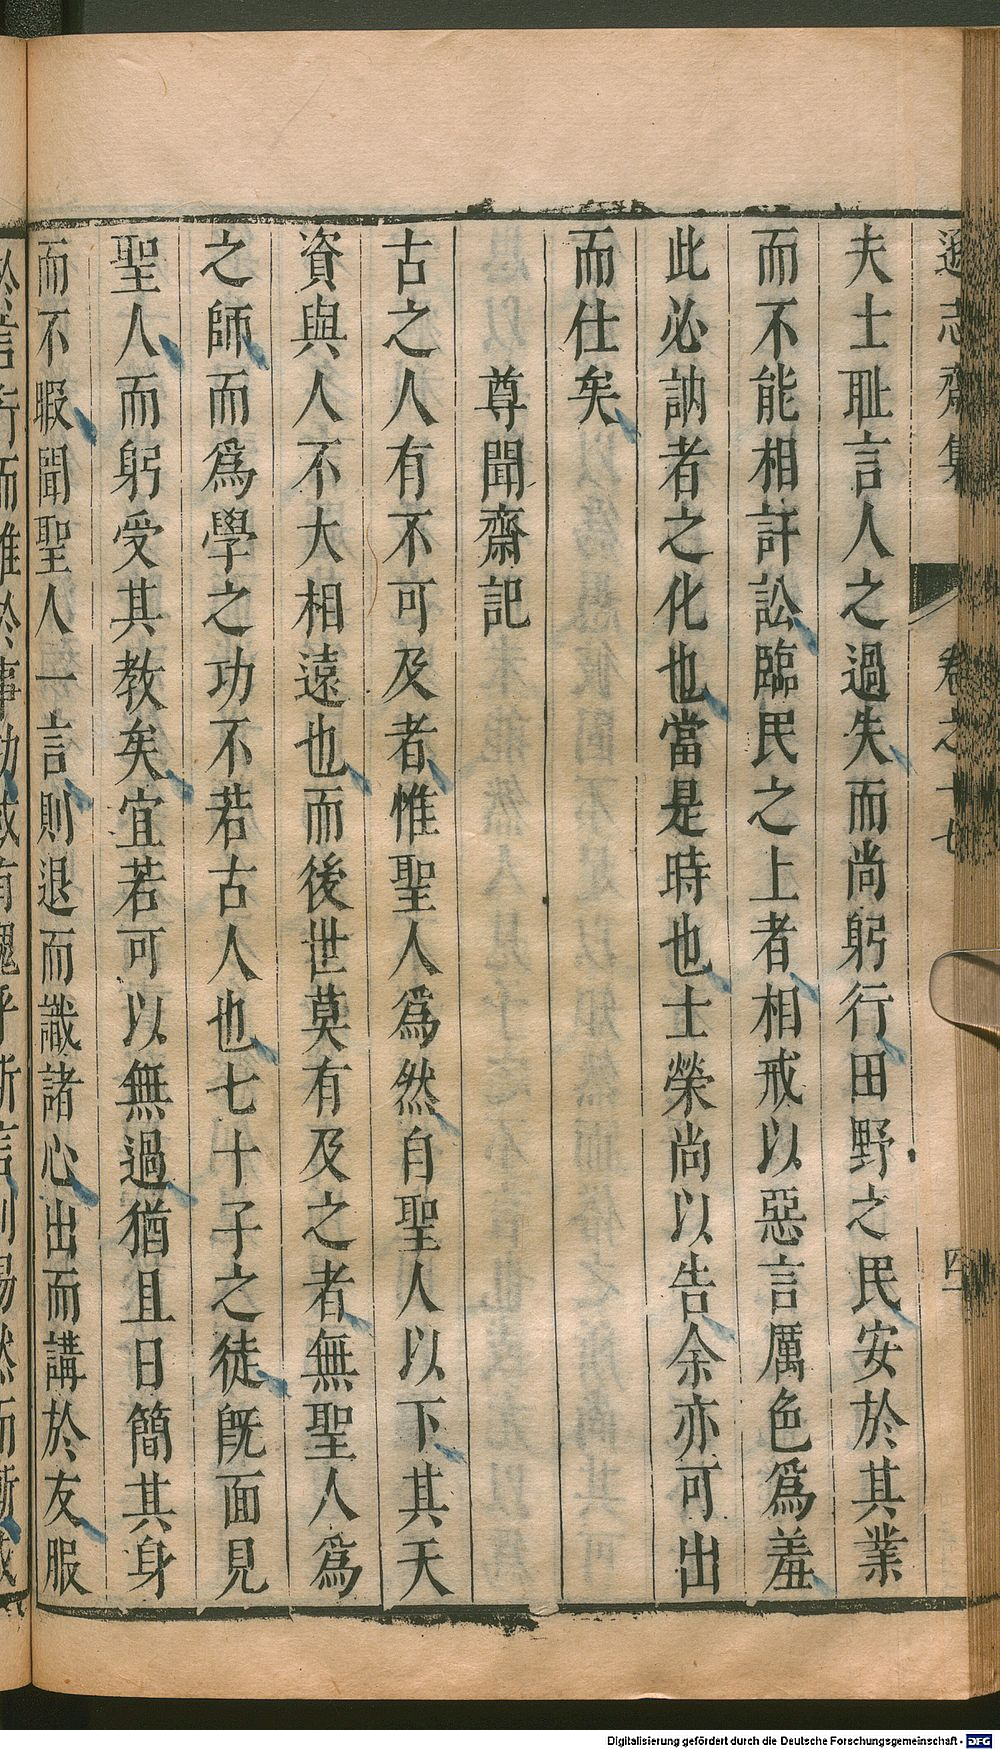 遜志齋集 卷之十七 四
夫士耻言人之過失而尚躬行田野之民安於其業
而不能相訐訟臨民之上者相戒以惡言厲色爲羞
此必訥者之化也當是時也士榮尚以告余亦可出
而仕矣
尊聞齋記
古之人有不可及者惟聖人爲然自聖人以下其天
資與人不大相遠也而後世莫有及之者無聖人爲
之師而爲學之功不若古人也七十子之徒旣面見
聖人而躬受其教矣宜若可以無過猶且日簡其身
而不暇聞聖人一言則退而識諸心出而講於友服
於言行而雖於事幼或有愧乎斯言則惕然而慚
Digitalisierung gefördert durch die Deutsche Forschungsgemeinschaft - DFG